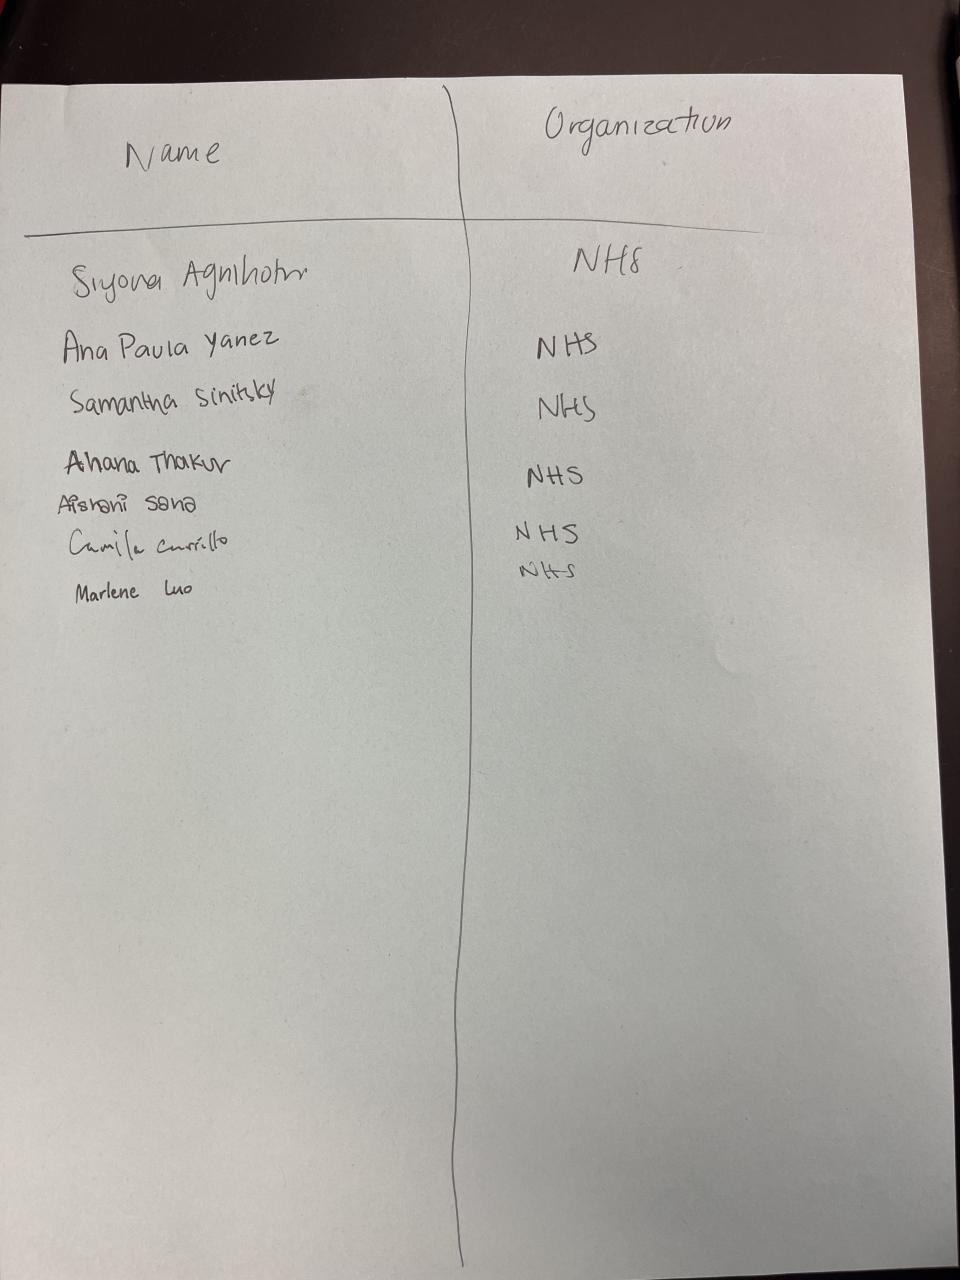 Name Organization
Siyona Agnihotri NHS
Ana Paula Yanez NHS
Samantha Sinitsky NHS
Ahana Thakur NHS
Aishani Sana
Camila Carrillo NHS
Marlene Luo NHS